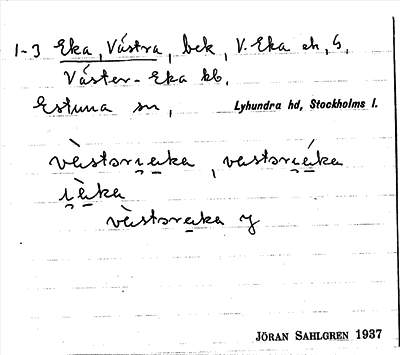 1-3 Eka, Västra, bek, V. Eka eh, G,
Väster-Eka bb,
Estuna sn, Lyhundra hd, Stockholms l.
vàstəri̯a̱ka, vastəri̯á̱ka
i̯à̱ka
vàstəra̱ka y
JÖRAN SAHLGREN 1937